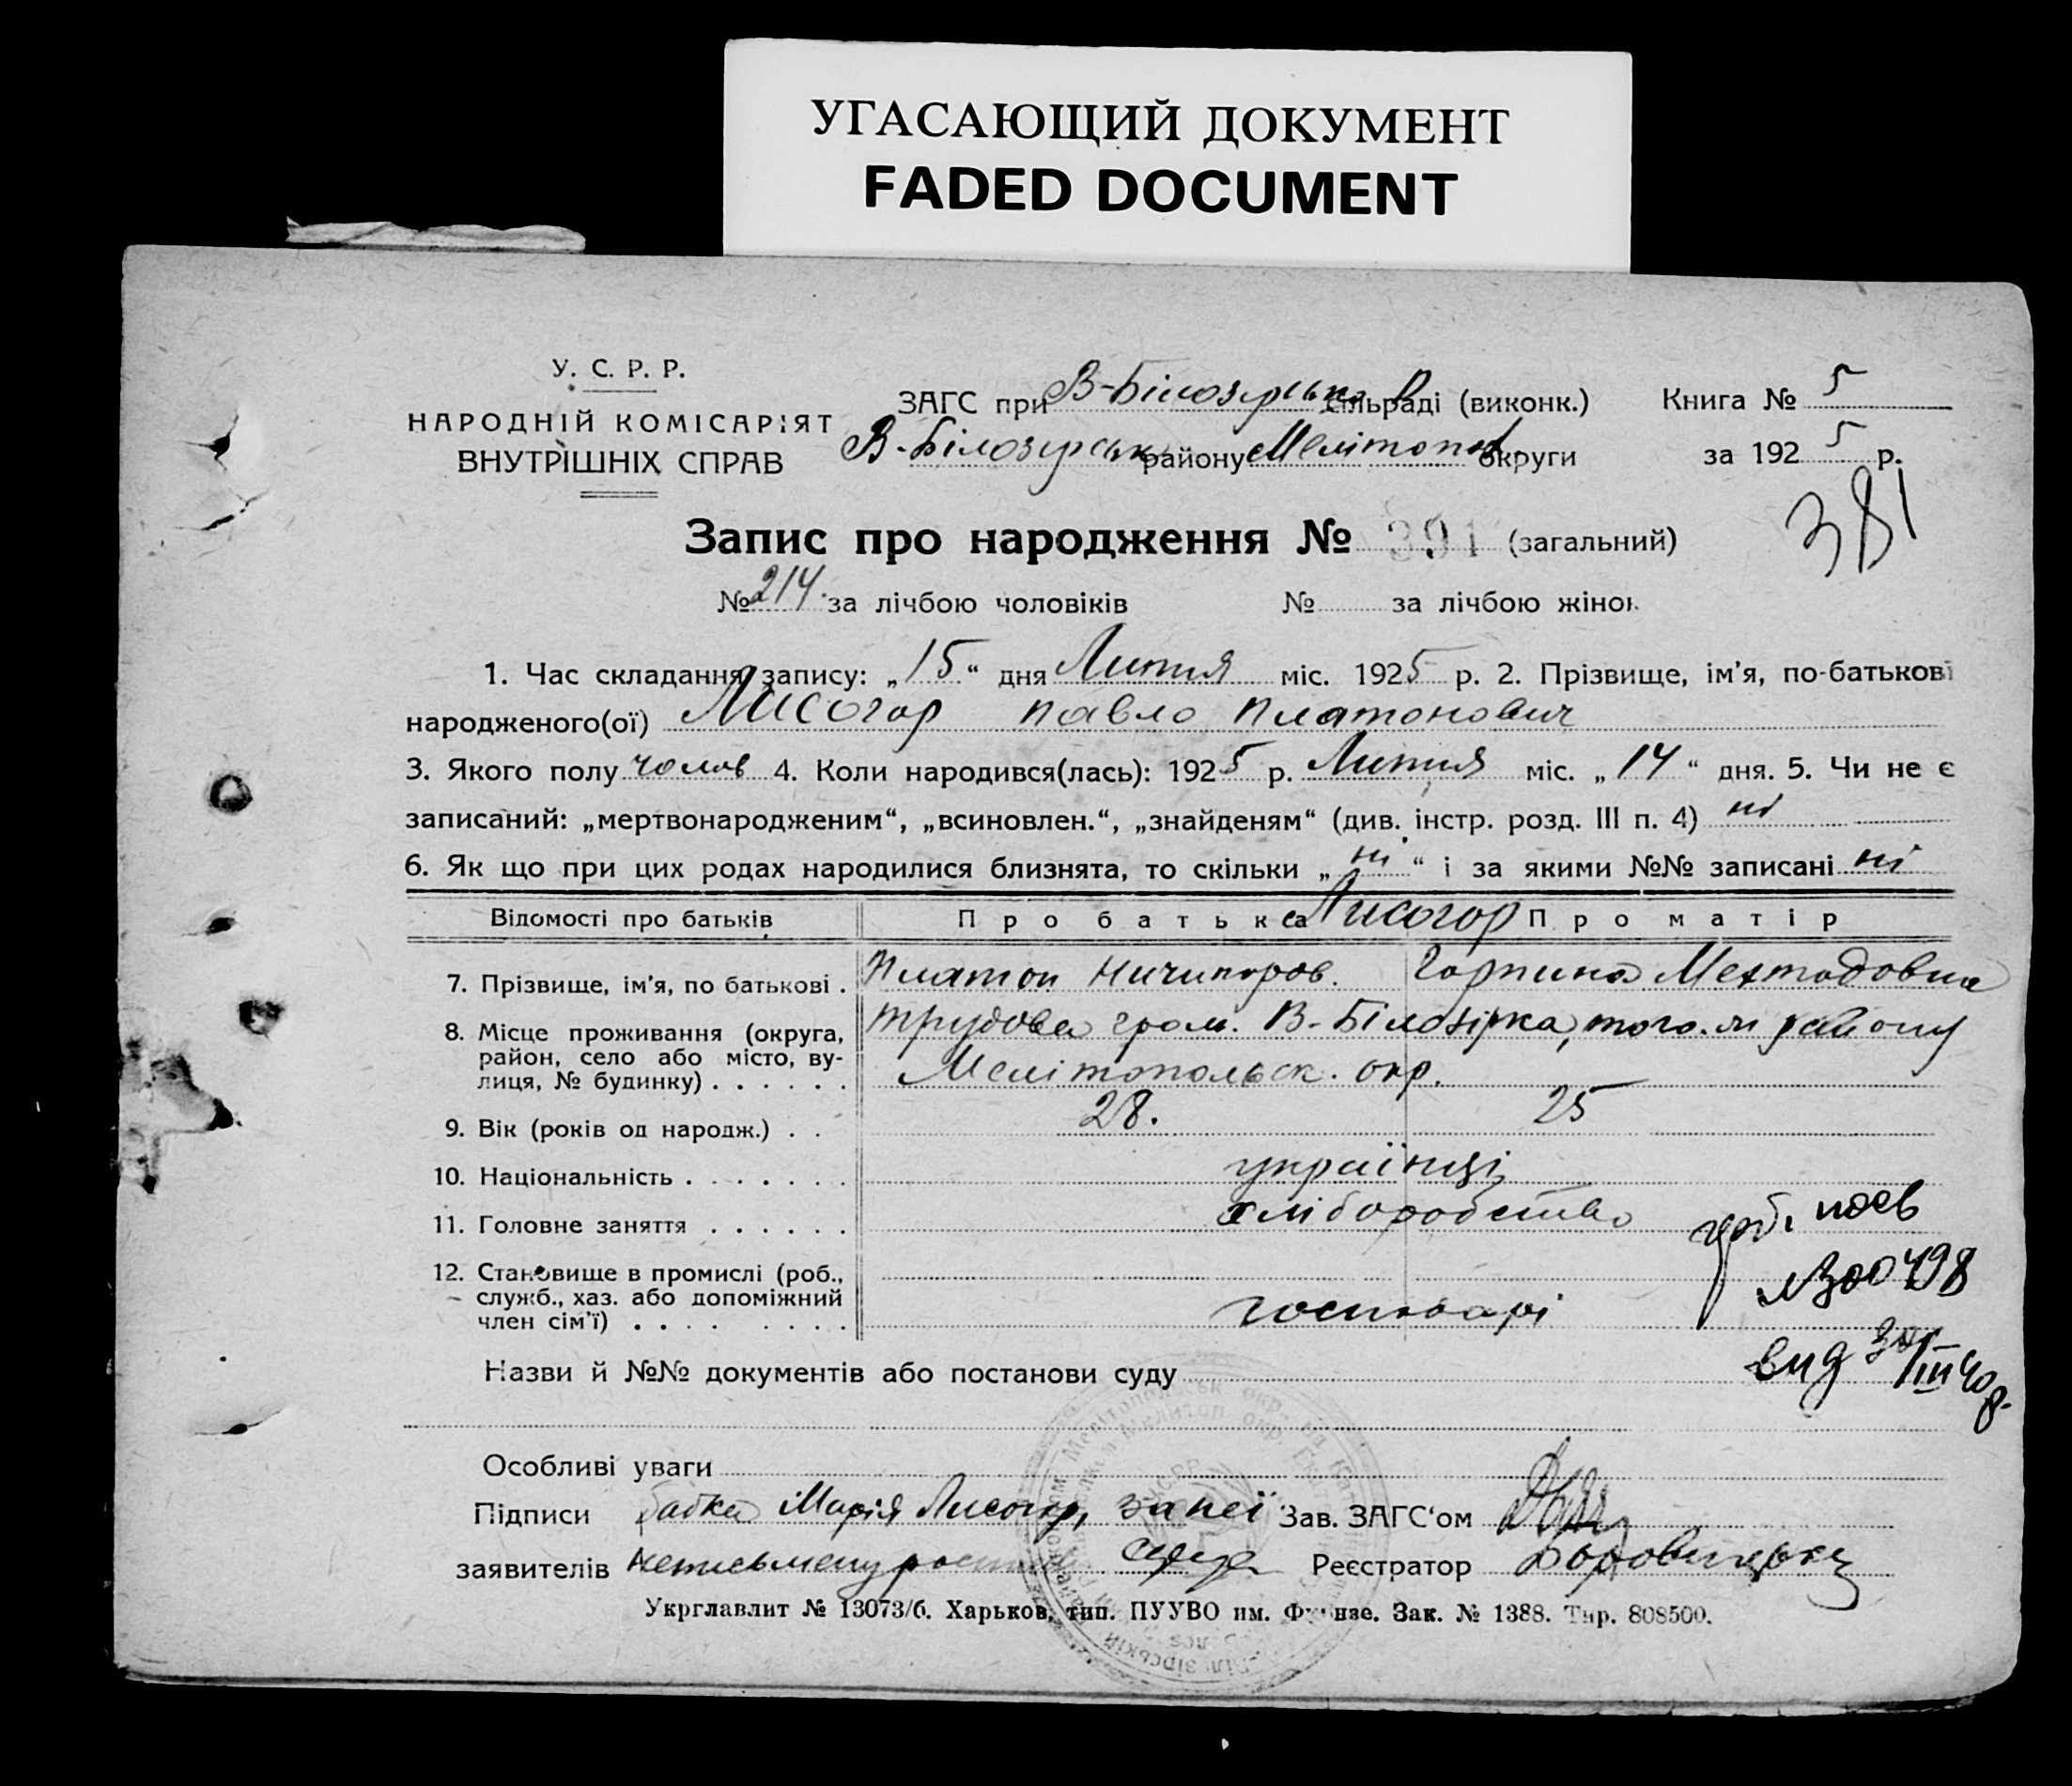 УГАСАЮЩИЙ ДОКУМЕНТ
FADED DOCUMENT
У. С. Р. Р.
НАРОДНІЙ КОМІСАРІЯТ
ВНУТРІШНІХ СПРАВ
ЗАГС при В-Білозірська Р сільраді (виконк.)
В-Білозірськ району Мелітопол округи
Книга № 5
за 1925 р.
381
Запис про народження № 391 (загальний)
№ 214. за лічбою чоловіків № за лічбою жінок
1. Час складання запису: „15“ дня Липня міс. 1925 р. 2. Прізвище, ім'я, по-батькові
народженого(ої) Лисогор Павло Платонович
3. Якого полу чолов 4. Коли народився(лась): 1925 р. Липня міс. „14“ дня. 5. Чи не є
записаний: „мертвонародженим“, „всиновлен.“, „знайденям“ (див. інстр. розд. III п. 4) ні
6. Як що при цих родах народилися близнята, то скільки „ні“ і за якими №№ записані ні
Відомості про батьків Про батька Лисогор Про матір
7. Прізвище, ім'я, по батькові . Платон Ничипоров. Горпина Мехтодовна
8. Місце проживання (округа, район, село або місто, вулиця, № будинку) . . . . . .
трудова гром. В-Білозірка, того-ж району
Мелітопольск. окр.
9. Вік (років од народж.) . . 28. 25
10. Національність . . . . . . . українці
11. Головне заняття . . . . . . хліборобство
12. Становище в промислі (роб., служб., хаз. або допоміжний член сім'ї) . . . . господарі
№300498
вид
Назви й №№ документів або постанови суду
Особливі уваги
Підписи бабка Марія Лисогор, за неї Зав. ЗАГС'ом
заявителів неписьмену Реєстратор
Укрглавлит № 13073/б. Харьков, тип. ПУУВО им. Фрунзе. Зак. № 1388. Тир. 808500.